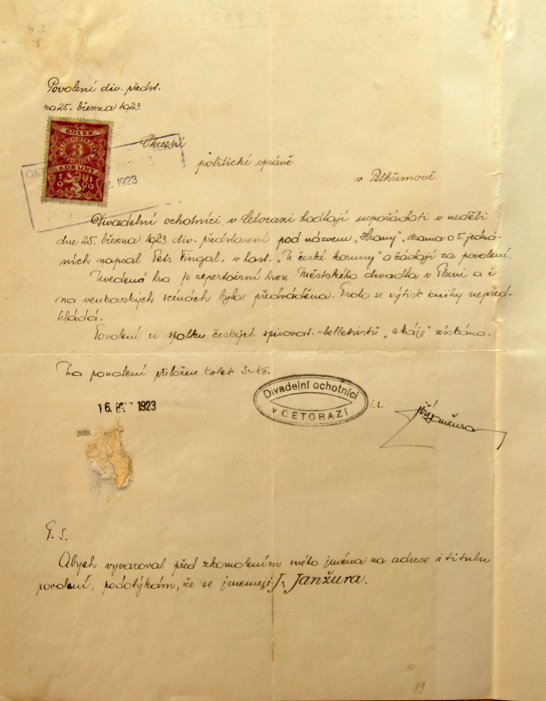 Povolení div. předst.
na 25. března 1923.
KOLEK
3
KORUNY
1923
Okresní
politické správě
v Pelhřimově.
Divadelní ochotníci v Cetorazi hodlají uspořádati v neděli
dne 25. března 1923 div. představení pod názvem „Hrany", drama o 5 jedná-
ních napsal Petr Fingal, v host. „U české koruny" a žádají za povolení.
Uvedená hra je repertoirní kus Městského divadla v Plzni a i
na venkovských scénách byla předváděna. Proto se výtisk knihy nepřed-
kládá.
Povolení u spolku českých spisovat.-belletristů „Máje" získáno.
Za povolení přiložen kolek 3-Kč.
16. 1923
Divadelní ochotníci
v CETORAZI
Jiří Janžura
P. S.
Abych vyvaroval před zkomolením svého jména na adrese i titulu
povolení, podotýkám, že se jmenuji J. Janžura.
19